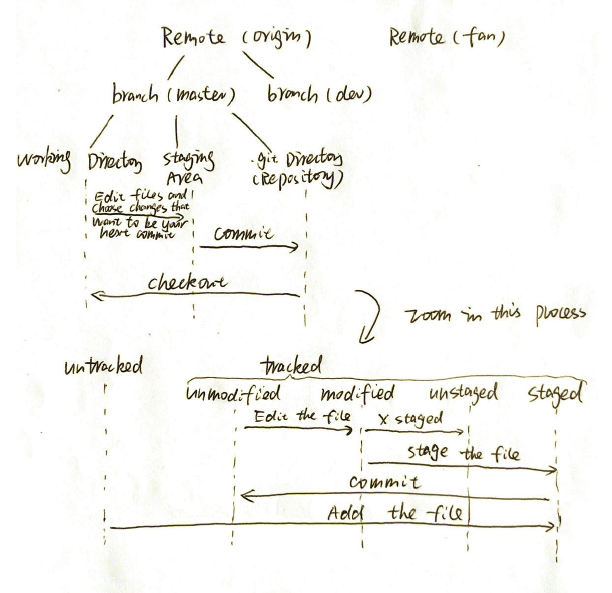 Remote (origin) Remote (fan)
branch (master) branch (dev)
Working Directory Staging Area .git Directory (Repository)
Edit files and
choose changes that
want to be your
next commit
commit
checkout
zoom in this process
untracked tracked
unmodified modified unstaged staged
Edit the file X staged
stage the file
commit
Add the file